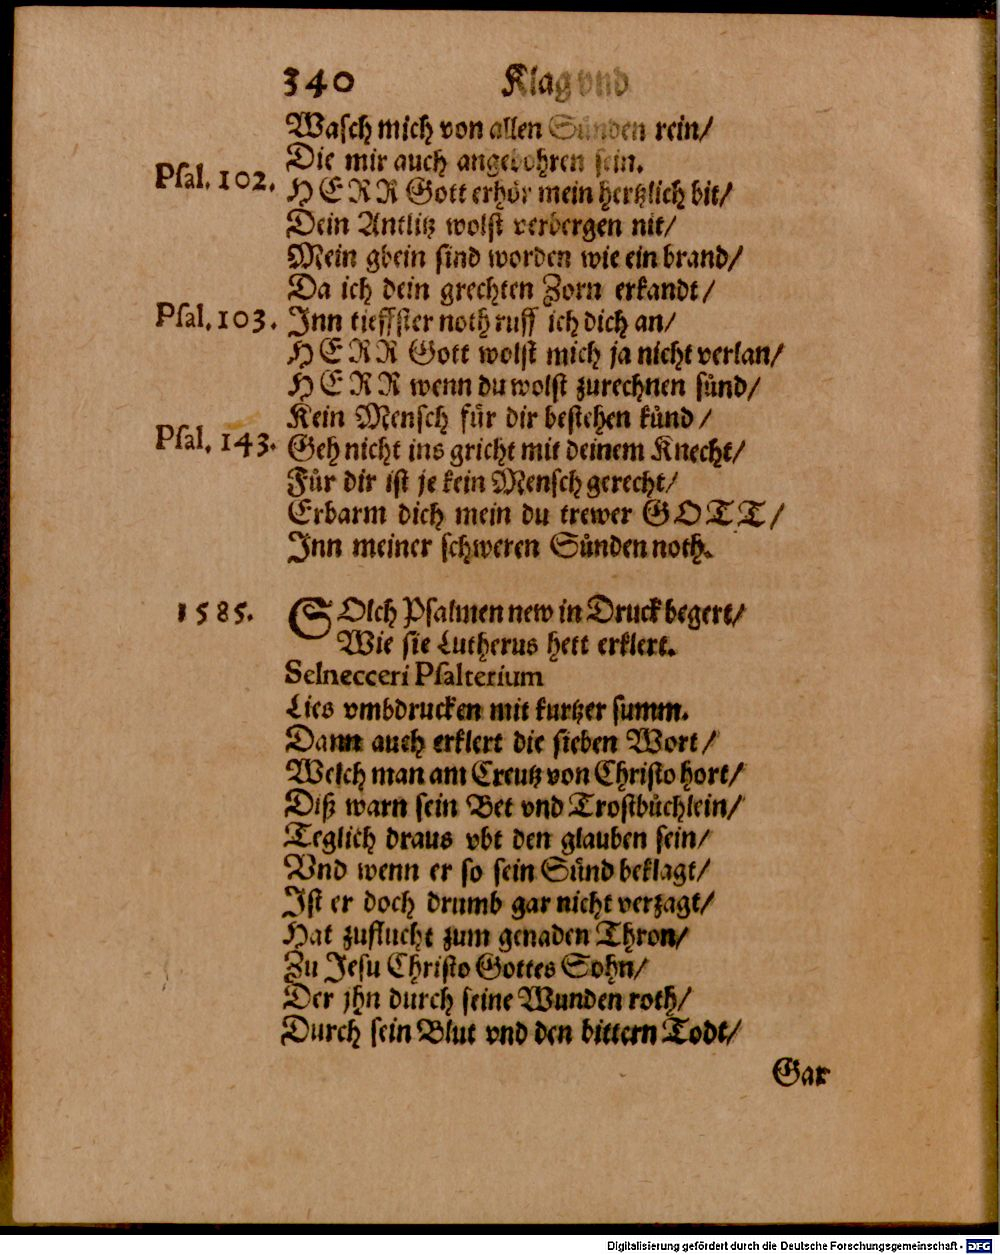 340 Klag vnd
Waſch mich von allen Sünden rein/
Die mir auch angebohren ſein.
Pſal. 102. HERR Gott erhör mein hertzlich bit/
Dein Antlitz wolſt verbergen nit/
Mein gbein ſind worden wie ein brand/
Da ich dein grechten Zorn erkandt/
Pſal. 103. Inn tieffſter noth ruff ich dich an/
HERR Gott wolſt mich ja nicht verlan/
HERR wenn du wolſt zurechnen ſünd/
Kein Menſch für dir beſtehen künd/
Pſal. 143. Geh nicht ins gricht mit deinem Knecht/
Für dir iſt je kein Menſch gerecht/
Erbarm dich mein du trewer GOTT/
Inn meiner ſchweren Sünden noth.
1585. SOlch Pſalmen new in Druck begert/
Wie ſie Lutherus hett erklert.
Selnecceri Pſalterium
Lies vmbdrucken mit kurtzer ſumm.
Dann auch erklert die ſieben Wort/
Welch man am Creutz von Chriſto hort/
Diß warn ſein Bet vnd Troſtbüchlein/
Teglich draus vbt den glauben ſein/
Vnd wenn er ſo ſein Sünd beklagt/
Iſt er doch drumb gar nicht verzagt/
Hat zuflucht zum genaden Thron/
Zu Jeſu Chriſto Gottes Sohn/
Der jhn durch ſeine Wunden roth/
Durch ſein Blut vnd den bittern Todt/
Gar
Digitalisierung gefördert durch die Deutsche Forschungsgemeinschaft - DFG